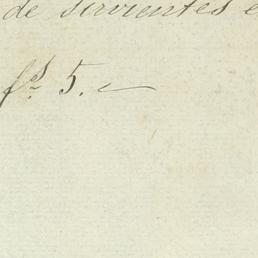 de sirvientes e
fs. 5. —